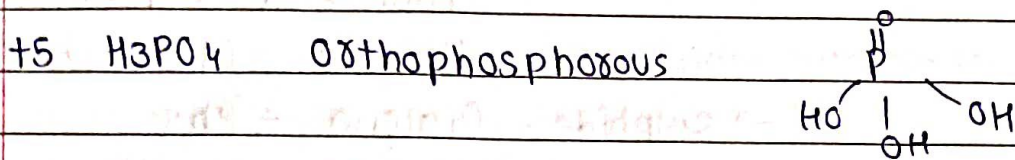 +5 H3PO4 Orthophosphorous
O
P
HO OH
OH